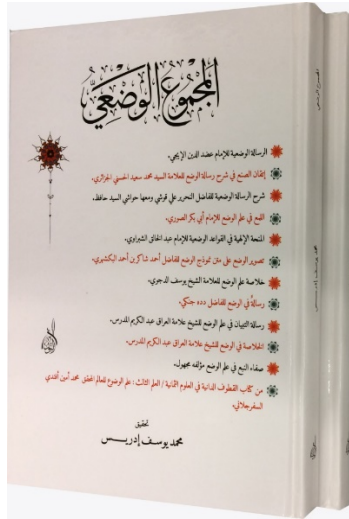 المجموع الوضعي
الرسالة الوضعية للإمام عضد الدين الإيجي.
إتقان الصنع في شرح رسالة الوضع للعلامة السيد محمد سعيد الحسني الجزائري.
شرح الرسالة الوضعية للفاضل النحرير علي قوشي ومعها حواشي السيد حافظ.
اللمع في علم الوضع للإمام أبي بكر الصوري.
المنحة الإلهية في القواعد الوضعية للإمام عبد الخالق الشبراوي.
تصوير الوضع على متن نموذج الوضع للفاضل أحمد شاكر بن أحمد البكشهري.
خلاصة علم الوضع للعلامة الشيخ يوسف الدجوي.
رسالة في الوضع للفاضل دده جنكي.
رسالة التبيان في علم الوضع للشيخ علامة العراق عبد الكريم المدرس.
الخلاصة في الوضع للشيخ علامة العراق عبد الكريم المدرس.
صفاء النبع في علم الوضع مؤلفه مجهول.
من كتاب القطوف الدانية في العلوم الثمانية / العلم الثالث : علم الوضوع للعالم المحقق محمد أمين أفندي
السفرجلاني.
تحقيق
محمد يوسف إدريس
المجموع الوضعي
محمد يوسف إدريس